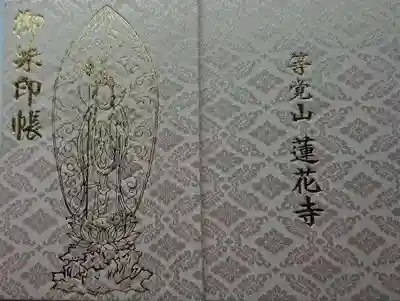 御朱印帳
等覚山 蓮花寺